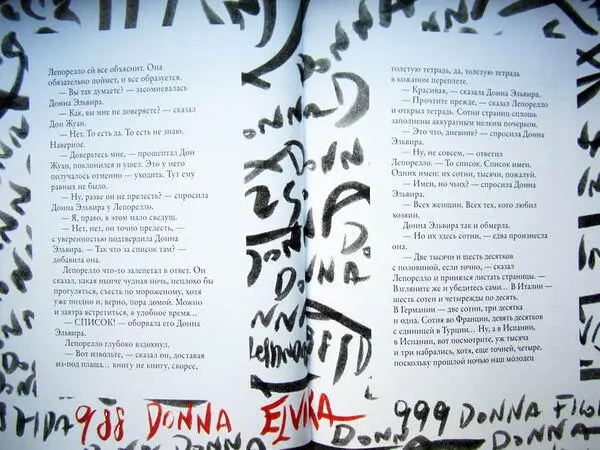 Лепорелло ей все объяснит. Она
обязательно поймет, и все образуется.
— Вы так думаете? — засомневалась
Донна Эльвира.
— Как, вы мне не доверяете? — сказал
Дон Жуан.
— Нет. То есть да. То есть не знаю.
Наверное.
— Доверьтесь мне, — прошептал Дон
Жуан, поклонился и ушел. Это у него
получалось отменно — уходить. Тут ему
равных не было.
— Ну, разве он не прелесть? — спросила
Донна Эльвира у Лепорелло.
— Я, право, в этом мало сведущ.
— Нет, нет, он точно прелесть, —
с уверенностью подтвердила Донна
Эльвира. — Так что за список там? —
добавила она.
Лепорелло что-то залепетал в ответ. Он
сказал, какая нынче чудная ночь, неплохо бы
прогуляться, съесть по мороженому, хотя
уже поздно и, верно, пора домой. Можно
и завтра встретиться, в удобное время...
— СПИСОК! — оборвала его Донна
Эльвира.
Лепорелло глубоко вздохнул.
— Вот извольте, — сказал он, доставая
из-под плаща... книгу не книгу, скорее,
толстую тетрадь, да, толстую тетрадь
в кожаном переплете.
— Красивая, — сказала Донна Эльвира.
— Прочтите прежде, — сказал Лепорелло
и открыл тетрадь. Сотни страниц сплошь
заполнены аккуратным мелким почерком.
— Это что, дневник? — спросила Донна
Эльвира.
— Ну, не совсем, — ответил
Лепорелло. — То список. Список имен.
Одних имен: их сотни, тысячи, пожалуй.
— Имен, но чьих? — спросила Донна
Эльвира.
— Всех женщин. Всех тех, кого любил
хозяин.
Донна Эльвира так и обмерла.
— Но их здесь сотни, — едва произнесла
она.
— Две тысячи и шесть десятков
с половиной, если точно, — сказал
Лепорелло и принялся листать страницы. —
Взгляните же и убедитесь сами... В Италии —
шесть сотен и четырежды по десять.
В Германии — две сотни, три десятка
и одна. Сотня во Франции, девять десятков
с единицей в Турции... Ну, а в Испании,
в Испании, вот посмотрите, уж тысяча
и три набрались, хотя, еще точней, четыре,
поскольку прошлой ночью наш мóлодец
988 DONNA ELVIRA
999 DONNA
DONNA